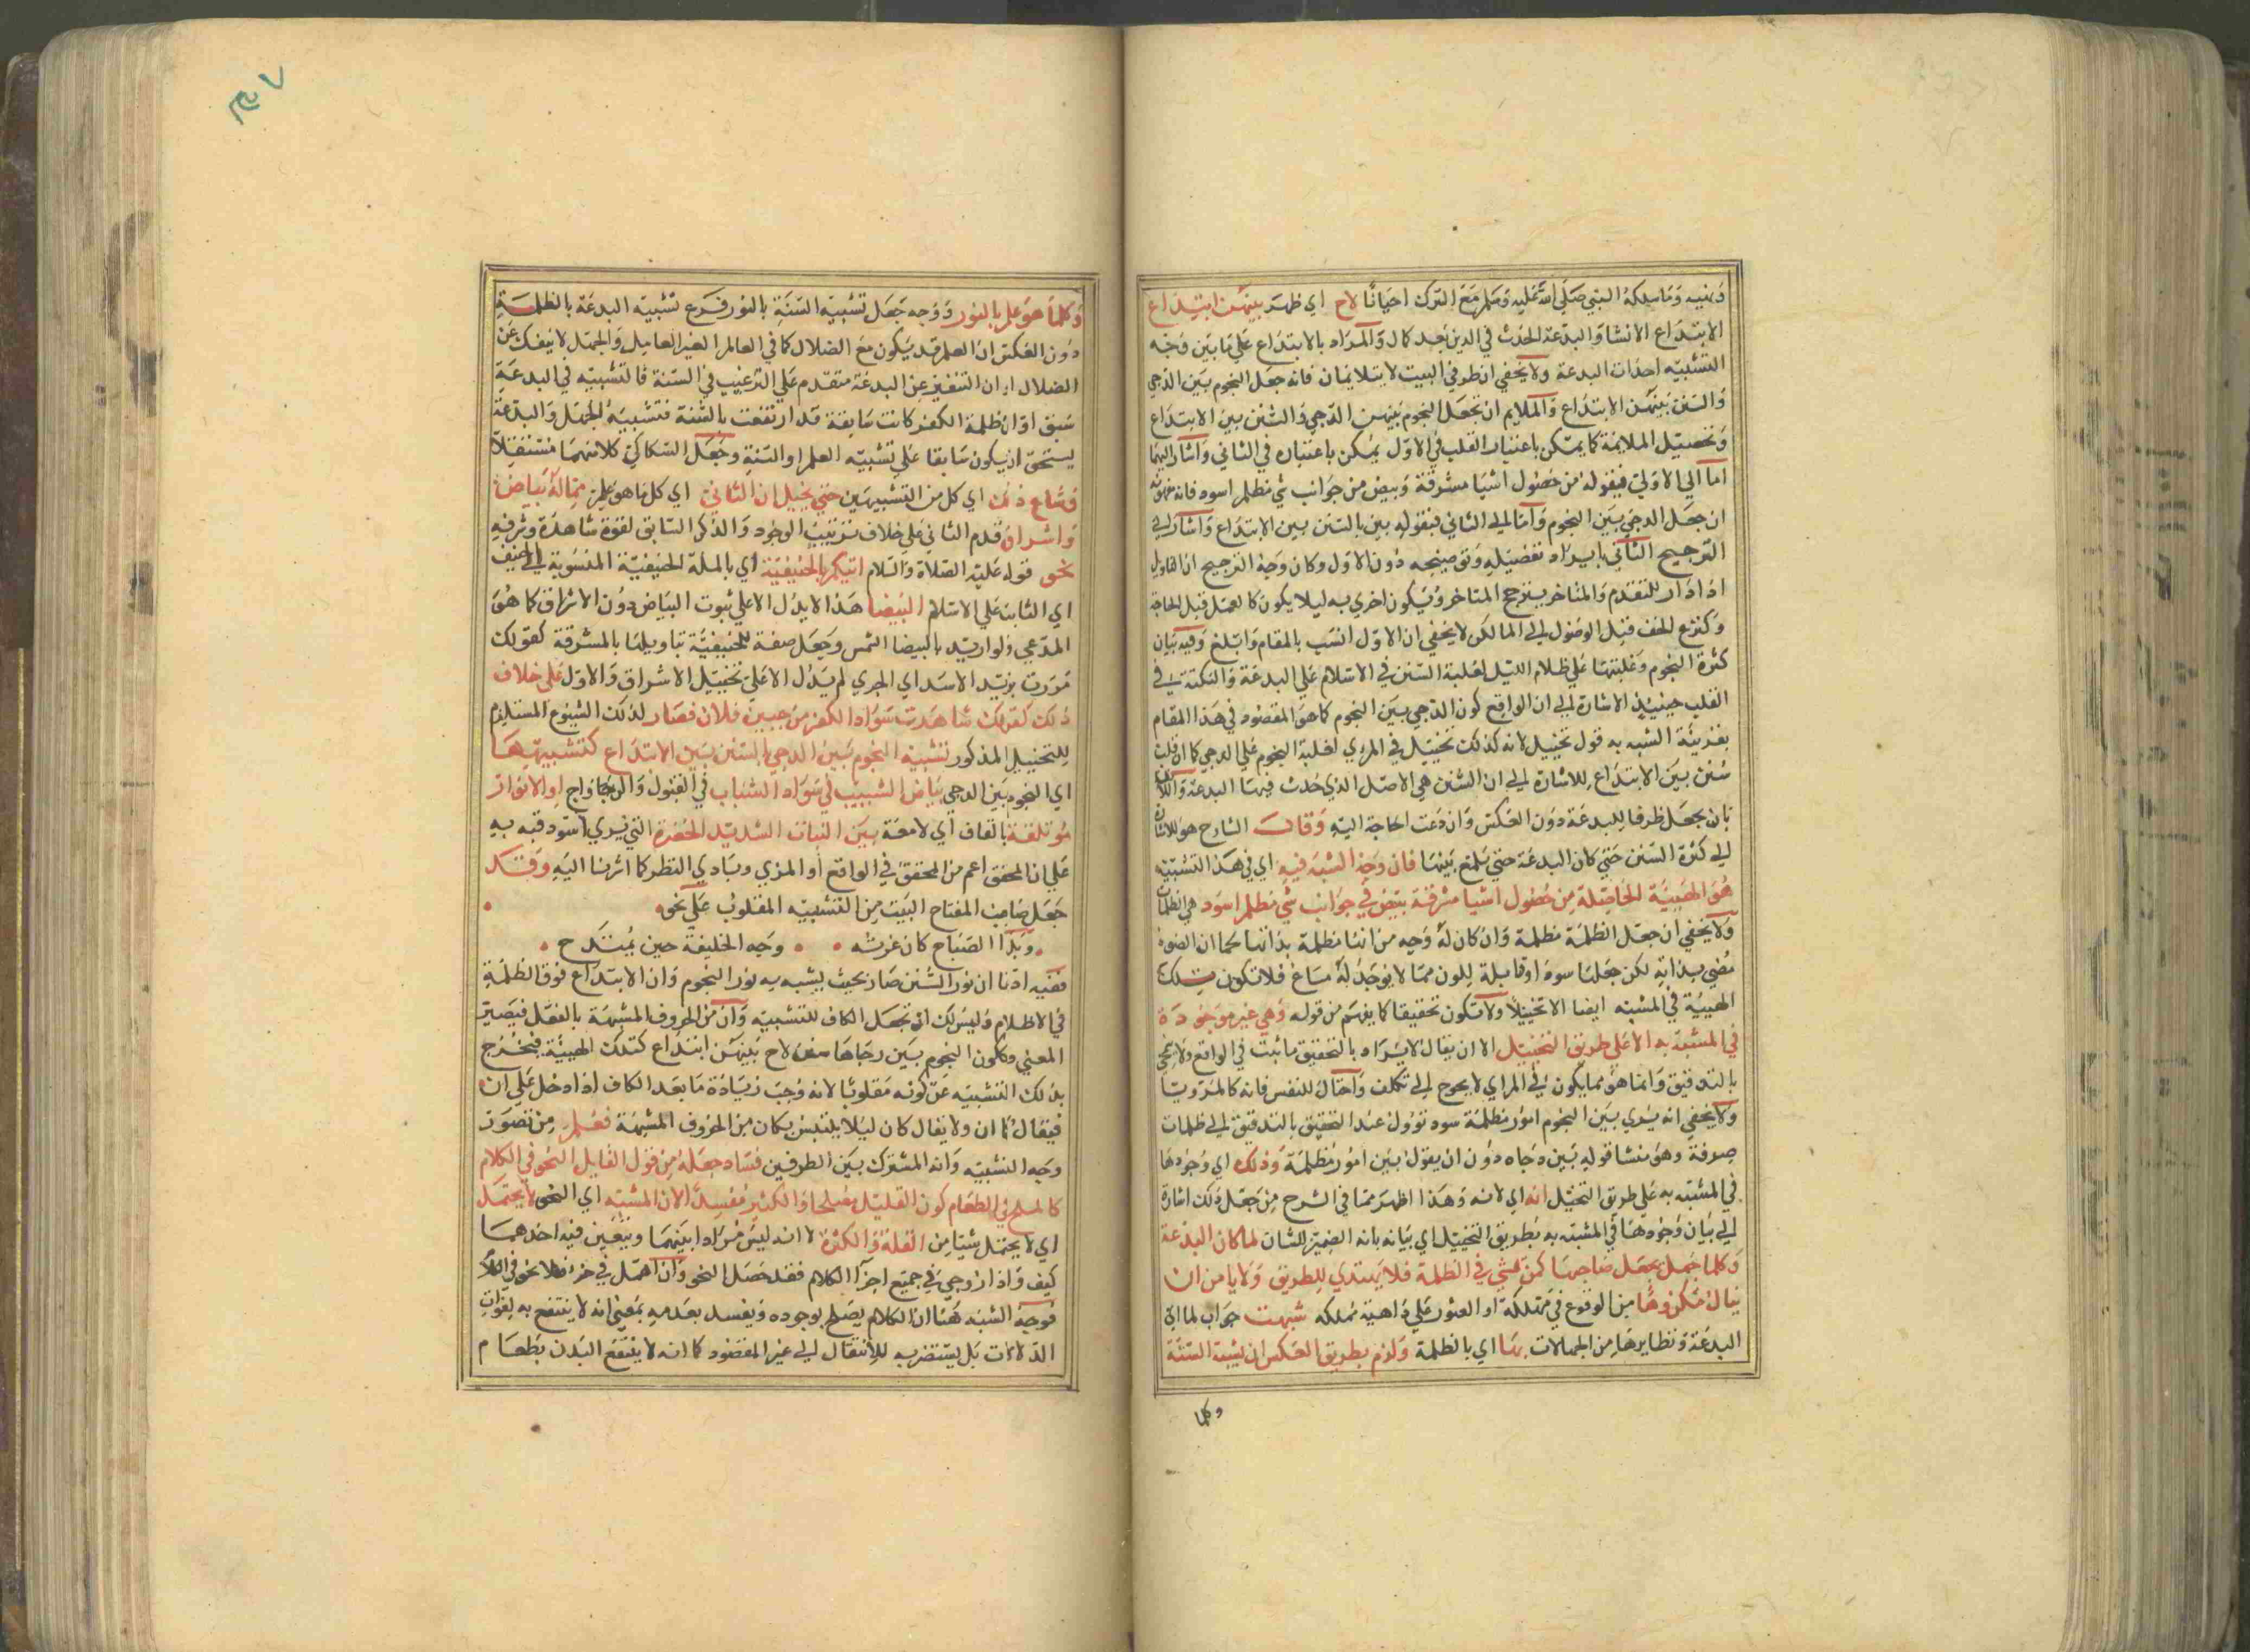 ونهيه وما سلكه النبي صلى الله عليه وسلم مع الترك احيانا لاح اي ظهر بينهن ابتداع
الابتداع الانشا والبدعة الحدث في الدين بعد كاله والمراد بالابتداع على ما بين وجه
التشبيه احداث البدعة ولا يخفي ان طرفي البيت لا يتلايمان فانه جعل النجوم بين الدجي
والسنن بينهن الابتداع والملايم ان تجعل النجوم بينهن الدجي والسنن بين الابتداع
وتحصيل الملايمة كما يمكن باعتبار القلب في الاول يمكن باعتباره في الثاني واشار اليهما
اما الي الاولي فبقوله من حصول اشيا مشرقة وبيض من جوانب شي مظلم اسود فانه
ان جعل الدجي بين النجوم واما الي الثاني فبقوله بين بالسنن بين الابتداع واشار الي
الترجيح الثاني بايراد تفصيله وتوضيحه دون الاول وكان وجه الترجيح ان التاويل
اذا دار للتقدم والمتاخر يترجح المتاخر ويكون احري به ليلا يكون كالعمل قبل الحاجة
وكنزع الخف قبل الوصول الي الما لكن لا يخفي ان الاول انسب بالمقام وابلغ وفيه بيان
كثرة النجوم وغلبتها علي ظلام الليل لغلبة السنن في الاسلام علي البدعة والنكتة في
القلب حينيذ الاشارة الي ان الواقع كون الدجي بين النجوم كما هو المقصود في هذا المقام
بقرينة الشبه به قول تخييل لانه كذلك تخييل في المري لغلبة النجوم علي الدجي كما ان قلب
سنن بين الابتداع للاشارة الي ان السنن هي الاصل الذي حدث فيها البدعة
بان يجعل ظرفا للبدعة دون العكس وان دعت الحاجة اليه وقال الشارح هو للاشارة
الي كثرة السنن حتي كان البدعة حتي تلمع بينها فان وجه الشبه فيه اي في هذا التشبيه
هو الهيئة الحاصلة من حصول اشيا مشرقة بيض في جوانب شي مظلم اسود هي الظلمات
ولا يخفي ان جعل الظلمة مظلمة وان كان له وجه من انها مظلمة بذاتها كما ان الضوء
مضي بذاته لكن جعلها سودا وقابلة للون مما لا يوجد له مساغ فلا تكون تلك
الهيئة في المشبه ايضا الا تخييلا ولا تكون تحقيقا كما يفهم من قوله وهي غير موجودة
في المشبه به الا علي طريق التخييل الا ان يقال لا يراد بالتحقيق ما ثبت في الواقع
بالتدقيق وانما هو مما يكون في المراي لا يحوج الي تكلف واحتال للنفس فانه كالمرويات
ولا يخفي انه يري بين النجوم امور مظلمة سود توول عند التحقيق بالتدقيق الي ظلمات
صرفة وهو منشا قوله بين دجاه دون ان يقول بين امور مظلمة وذلك اي وجودها
في المشبه به علي طريق التخيل انه اي لانه وهذا اظهر مما في الشرح من جعل ذلك اشارة
الي بيان وجودها في المشبه به بطريق التخييل اي بيانه بانه الضمير للشان لما كان البدعة
وكلما جهل يجعل صاحبها كمن يمشي في الظلمة فلا يهتدي للطريق ولا يامن ان
ينال مكروها من الوقوع في مهلكة او العثور علي داهية مهلكه شبهت جواب لما اي
البدعة ونظايرها من الجهالات بها اي بالظلمة ولزم بطريق العكس ان يشبه السنة
وكلما
وكلما هو علم بالنور ووجه جعل تشبيه السنة بالنور فرع تشبيه البدعة بالظلمة
دون العكس ان العلم قد يكون مع الضلال كما في العالم الغير العامل والجهل لا ينفك عن
الضلال او ان التنفير عن البدعة متقدم علي الترغيب في السنة فالتشبيه في البدعة
سبق او ان ظلمة الكفر كانت سابقة قد ارتفعت بالسنة فتشبيه الجهل والبدعة
يستحق ان يكون سابقا علي تشبيه العلم او السنة وجعل السكاكي كلا منهما مستقلا
وشاع ذلك اي كل من التشبيهين حتي يخيل ان الثاني اي كل ما هو علم مما له بياض
واشراق قدم الثاني علي خلاف ترتيب الوجود والذكر السابق لقوة شاهده وشرفه
نحو قوله عليه الصلاة والسلام اتيتكم بالحنيفية اي بالملة الحنيفية المنسوبة الي الحنيف
اي الثابت علي الاسلام البيضا هذا لا يدل الا علي ثبوت البياض دون الاشراق كما هو
المدعي ولو اريد بالبيضا الشمس وجعل صفة للحنيفية بتاويلها بالمشرقة كقولك
مررت بزيد الاسد اي الجري لم يدل الا علي تخييل الاشراق والاول علي خلاف
ذلك كقولك شاهدت سواد الكفر من جبين فلان فصار لذلك الشيوع المستلزم
للتخييل المذكور تشبيه النجوم بين الدجي بالسنن بين الابتداع كتشبيهها
اي النجوم بين الدجي بياض الشيب في سواد الشباب في القبول والرواج او الانوار
موتلقة بالقاف اي لامعة بين النبات الشديد الخضرة التي يري اسود فنبه به
علي ان المحقق اعم من المحقق في الواقع او المري وبادي النظر كما اشرنا اليه وقد
جعل صاحب المفتاح البيت من التشبيه المقلوب علي نحو
وبدا الصباح كان غرته وجه الخليفة حين يمتدح
ففيه ادنا ان نور السنن صار بحيث يشبه به نور النجوم وان الابتداع فوق الظلمة
في الاظلام وليس لك ان تجعل الكاف للتشبيه وان من الحروف المشبهة بالفعل فيصير
المعني وكون النجوم بين دجاها سنن لاح بينهن ابتداع كتلك الهيئة فيخرج
بذلك التشبيه عن كونه مقلوبا لانه وجب زيادة ما بعد الكاف اذا دخل علي ان
فيقال كما ان ولا يقال كان ليلا يلتبس بكان من الحروف المشبهة فعلم من تصور
وجه التشبيه وانه المشترك بين الطرفين فساد جعله من قول القايل النحو في الكلام
كالملح في الطعام كون القليل مصلحا والكثير مفسدا لان المشبه اي النحو لا يحتمل
اي لا يحتمل شيا من القلة والكثرة لانه ليس مرادا بينهما ويتعين فيه احدهما
كيف واذا روعي في جميع اجزا الكلام فقد حصل النحو وان اهمل في جزء فلا نحو في
فوجه الشبه ههنا ان الكلام يصلح بوجوده ويفسد بعدمه بمعني انه لا ينتفع به لفوات
الدلالات بل يستضر به للانتقال الي غير المقصود كما انه لا ينتفع البدن بطعام